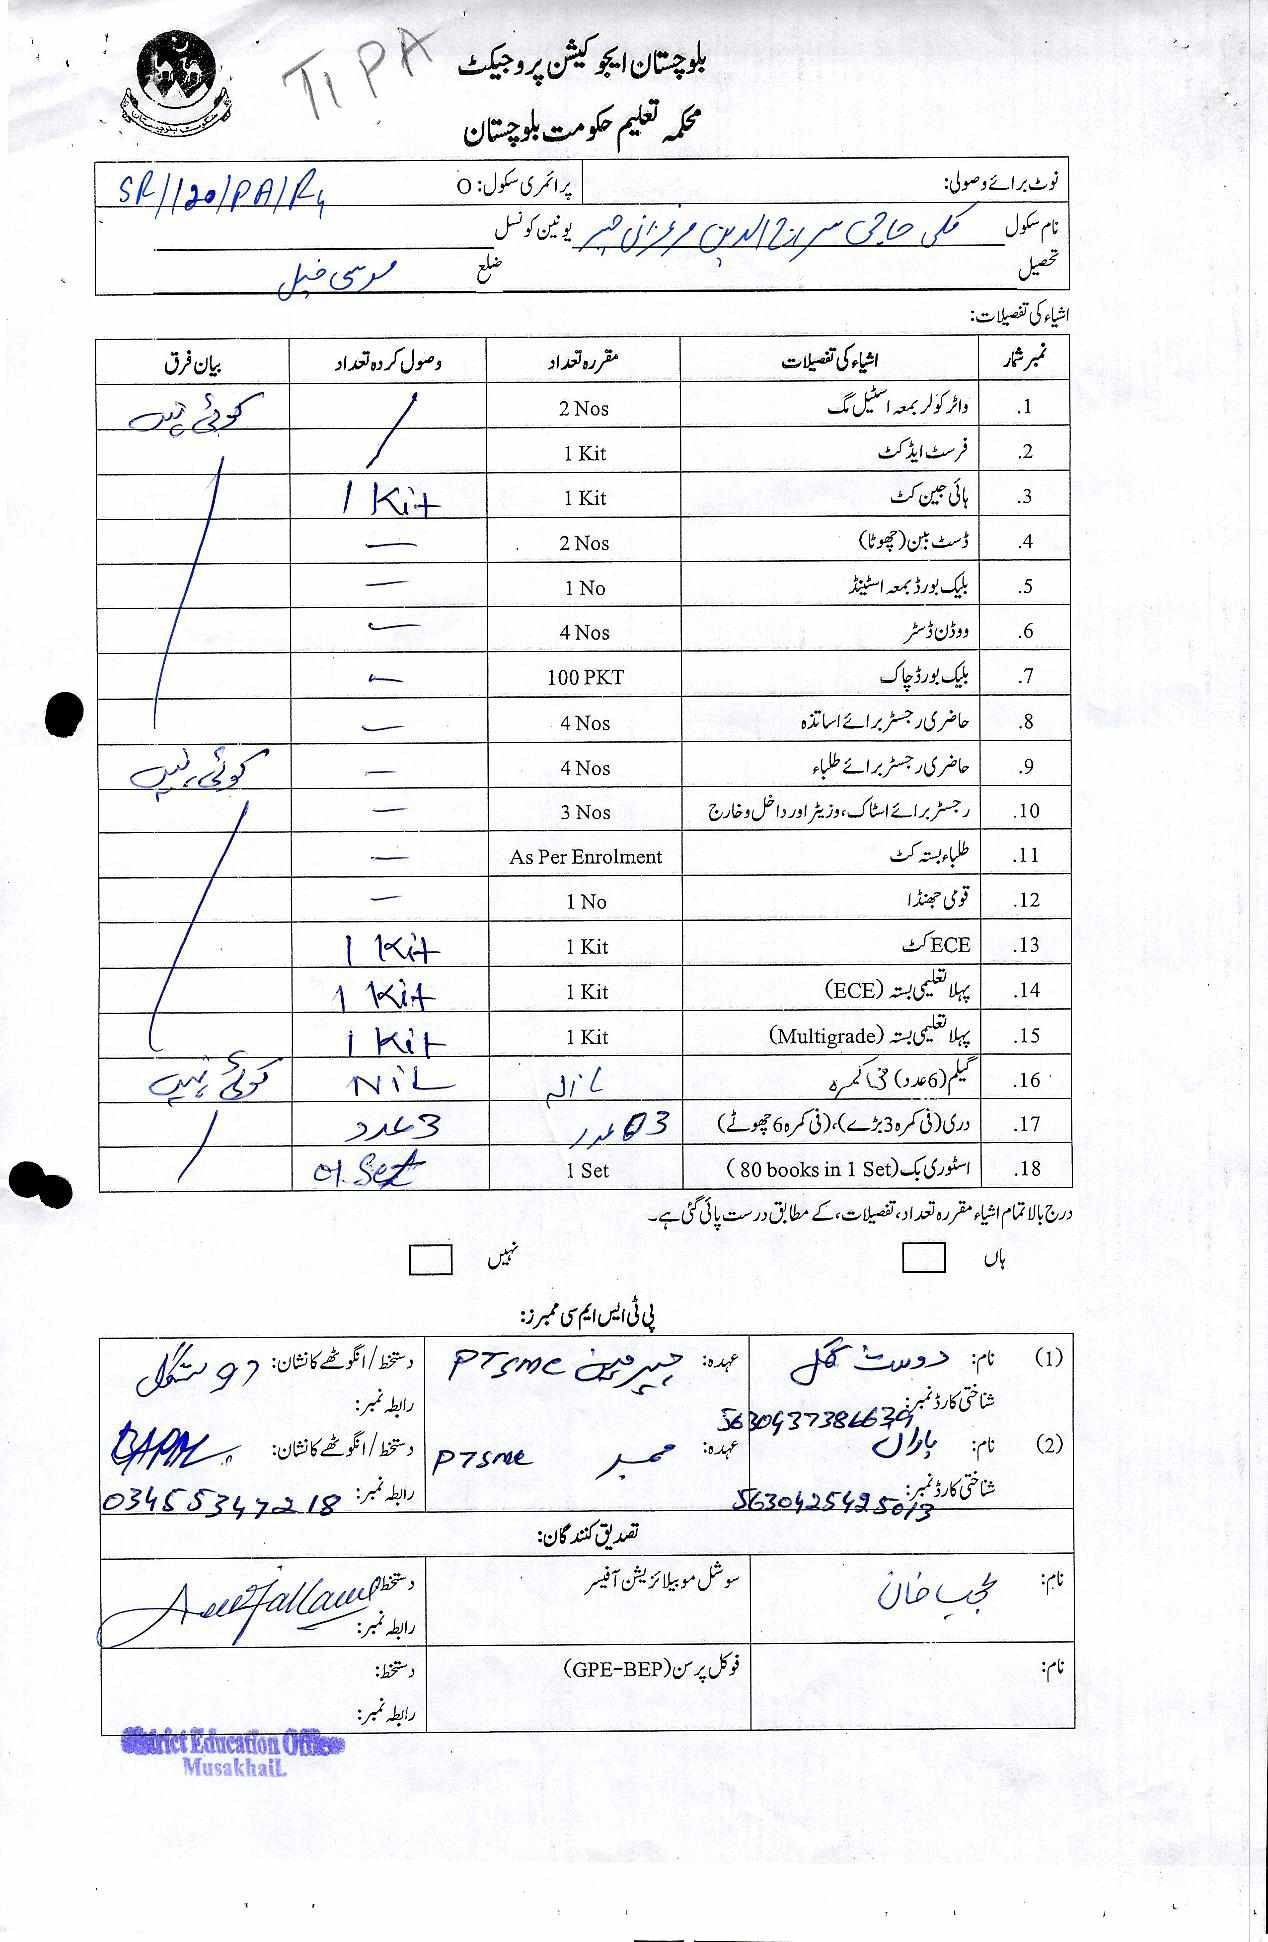 TIPA
بلوچستان ایجوکیشن پروجیکٹ
محکمہ تعلیم حکومت بلوچستان
نوٹ برائے وصولی: پرائمری سکول: O SR/120/PA/R4
نام سکول کلی حاجی سراج الدین مرغزانی یونین کونسل
تحصیل ضلع موسی خیل
اشیاء کی تفصیلات:
نمبر شمار اشیاء کی تفصیلات مقررہ تعداد وصول کردہ تعداد بیان فرق
1. واٹر کولر بمعہ اسٹیل مگ 2 Nos / کوئی نہیں
2. فرسٹ ایڈ کٹ 1 Kit
3. ہائی جین کٹ 1 Kit 1 Kit
4. ڈسٹ بین (چھوٹا) 2 Nos —
5. بلیک بورڈ بمعہ اسٹینڈ 1 No —
6. ووڈن ڈسٹر 4 Nos —
7. بلیک بورڈ چاک 100 PKT —
8. حاضری رجسٹر برائے اساتذہ 4 Nos —
9. حاضری رجسٹر برائے طلباء 4 Nos — کوئی نہیں
10. رجسٹر برائے اسٹاک، وزیٹر اور داخل و خارج 3 Nos —
11. طلباء بستہ کٹ As Per Enrolment —
12. قومی جھنڈا 1 No —
13. ECE کٹ 1 Kit 1 Kit
14. پہلا تعلیمی بستہ (ECE) 1 Kit 1 Kit
15. پہلا تعلیمی بستہ (Multigrade) 1 Kit 1 Kit
16. گیلم (6 عدد) فی کمرہ NiL کوئی نہیں
17. دری (فی کمرہ 3 بڑے)، (فی کمرہ 6 چھوٹے) 03 عدد 3 عدد
18. اسٹوری بک (80 books in 1 Set) 1 Set 01 Set
درج بالا تمام اشیاء مقررہ تعداد، تفصیلات، کے مطابق درست پائی گئی ہے۔
ہاں نہیں
پی ٹی ایس ایم سی ممبرز:
(1) نام: دوست گل عہدہ: چیرمین PTSMC دستخط/انگوٹھے کا نشان: دوست گل
شناختی کارڈ نمبر: 5630437386639 رابطہ نمبر:
(2) نام: باران عہدہ: ممبر PTSMC دستخط/انگوٹھے کا نشان:
شناختی کارڈ نمبر: 5630425425013 رابطہ نمبر: 03455347218
تصدیق کنندگان:
نام: نجیب خان سوشل موبیلائزیشن آفیسر دستخط:
رابطہ نمبر:
نام: فوکل پرسن (GPE-BEP) دستخط:
رابطہ نمبر:
District Education Office
Musakhail.